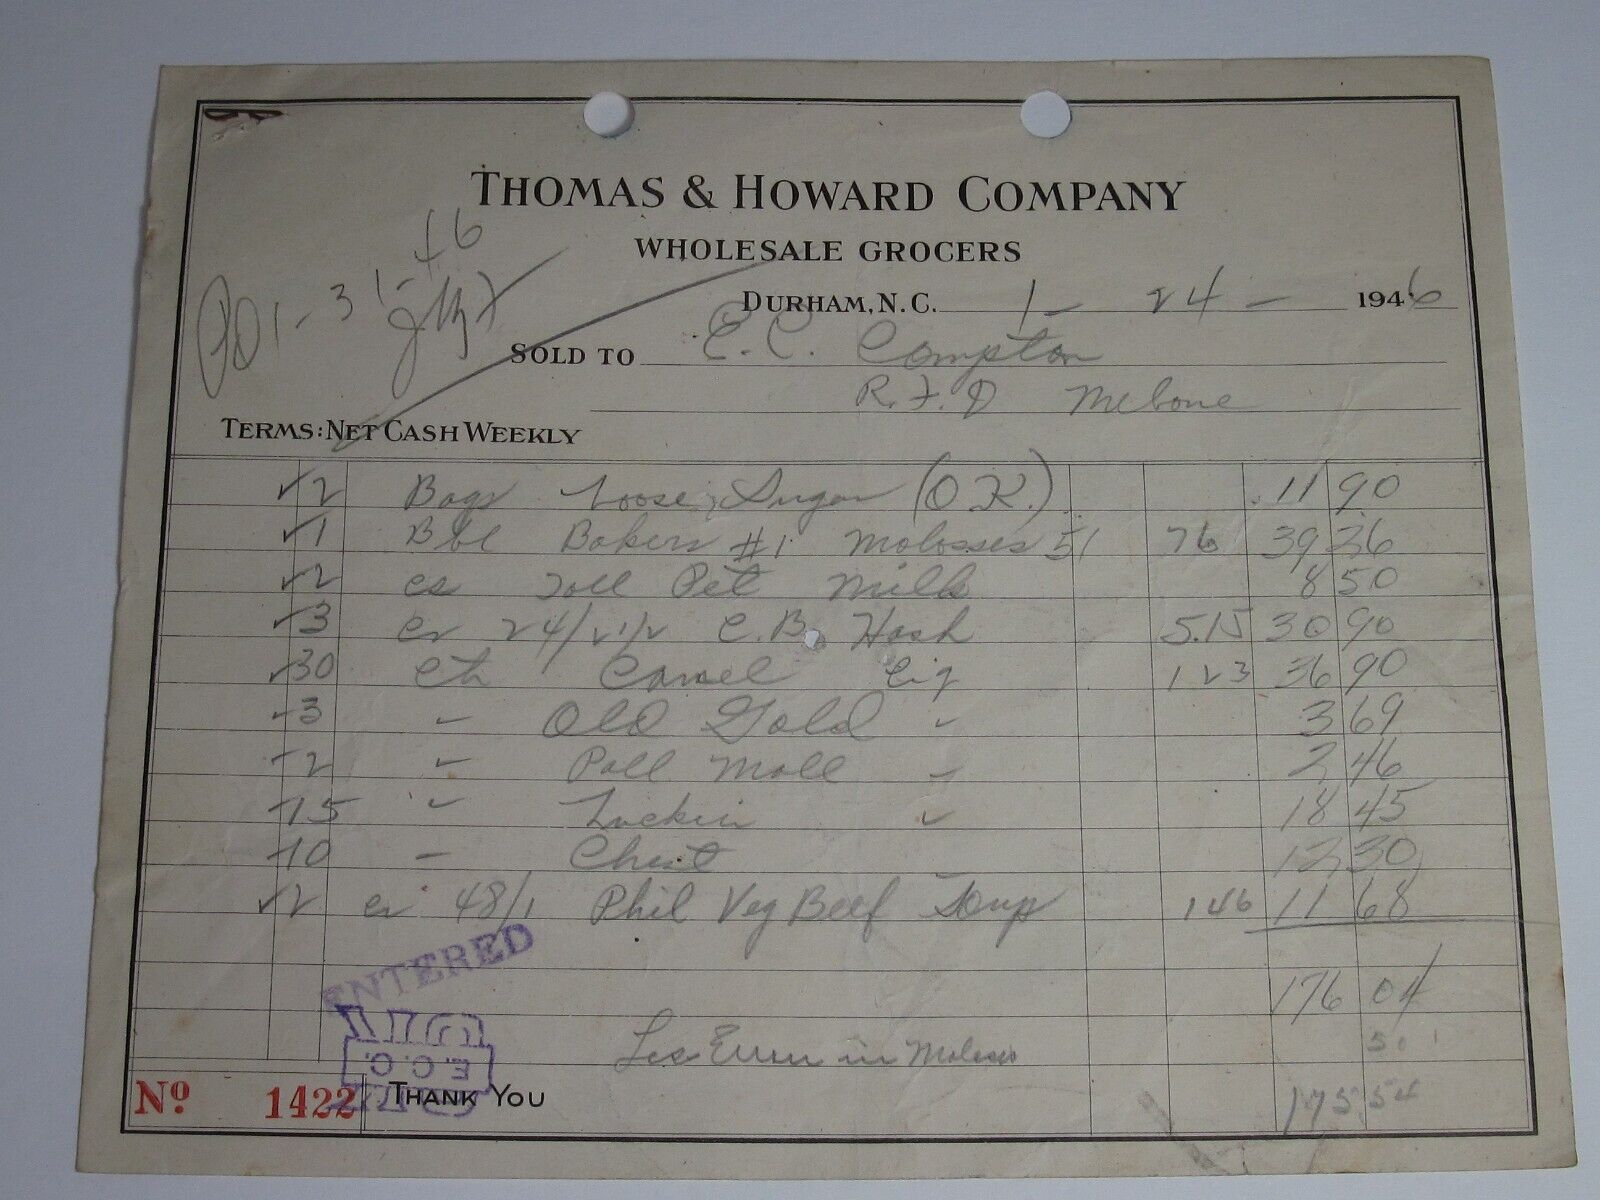 THOMAS & HOWARD COMPANY
WHOLESALE GROCERS
DURHAM, N.C. 1 - 24 - 1946
PD 1-31-46
SOLD TO E.C. Compton
R.F.D Mebone
TERMS: NET CASH WEEKLY
2 Bags Loose Sugar (O.K.) 11 90
1 Bbl Bakers #1 Molosses 51 76 39 36
2 cs Tall Pet Milk 8 50
3 cs 24/2 1/2 C.B. Hash 5.15 30 90
30 Ctn Camel Cig 123 36 90
3 " Old Gold " 3 69
2 " Pall Mall " 2 46
15 " Luckies " 18 45
10 " Chest 12 30
2 cs 48/1 Phil Veg Beef Soup 146 11 68
176 04
ENTERED
Les Error in Molasses 50
E.C.C.
175 54
No 1422 THANK YOU